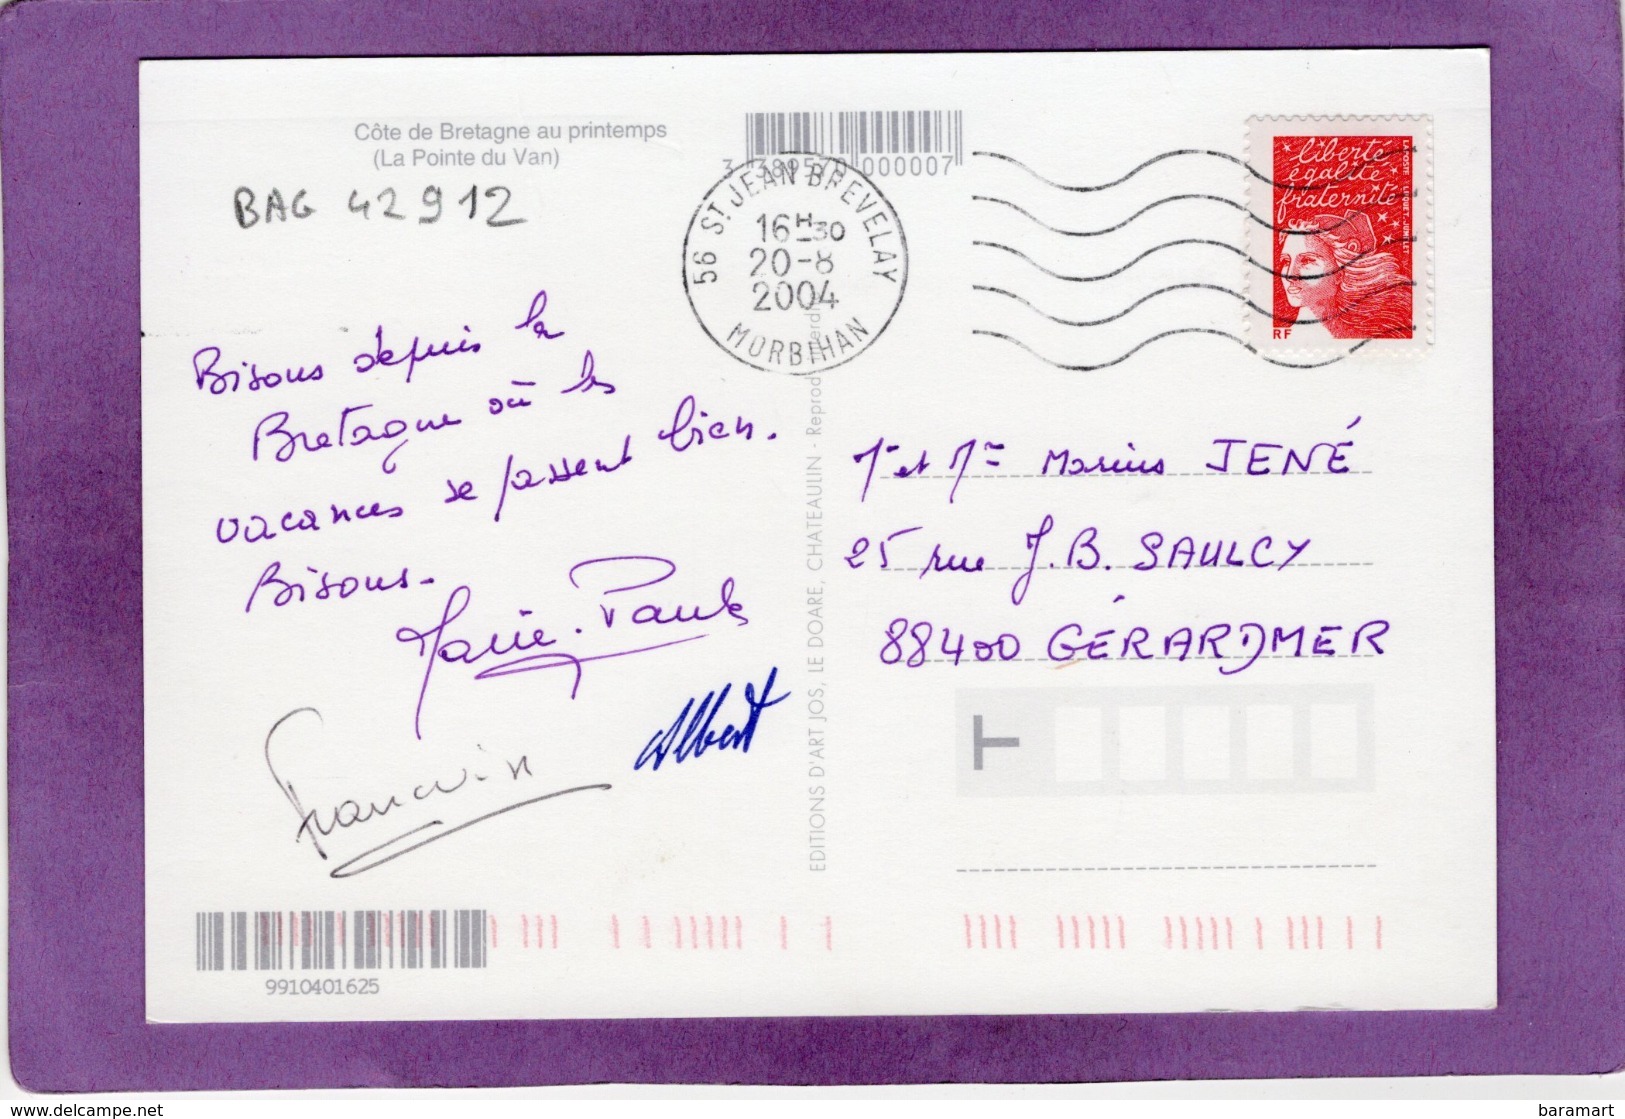 Côte de Bretagne au printemps
(La Pointe du Van)
BAG 42 9 12
3 389570 000007
56 ST JEAN BREVELAY
16H-30
20-8
2004
MORBIHAN
liberté
égalité
fraternité
LA POSTE
RF
Bisous depuis la
Bretagne où les
vacances se passent bien.
Bisous.
Marie-Paule
Albert
EDITIONS D'ART JOS, LE DOARE, CHATEAULIN - Reprod.
Mr et Mme Marius JENÉ
25 rue J.B. SAULCY
88400 GÉRARDMER
9910401625
www.delcampe.net
baramart